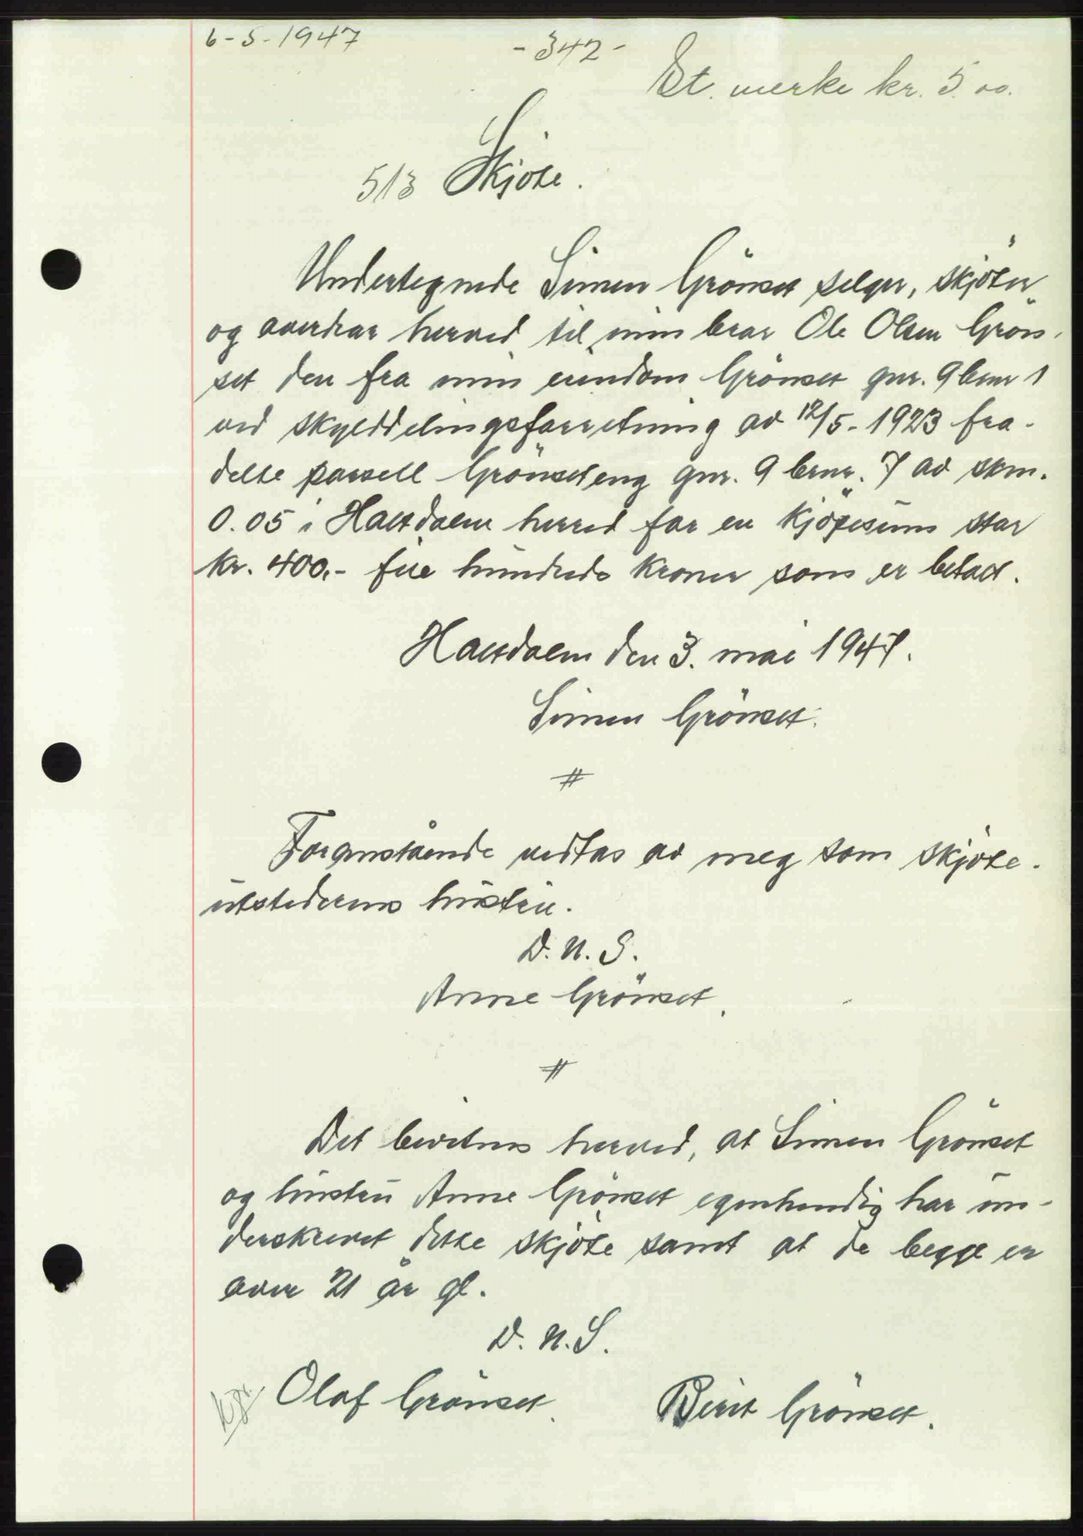 6-5-1947
-342-
St. merke kr. 5.00.
513 Skjöte.
Undertegnede Simen Grönset selger, skjöter
og overdrar herved til min bror Ole Olsen Grön-
set den fra min eiendom Grönset gnr. 9 bnr 1
ved skylddelingsforretning av 12/5-1923 fra-
delte parsell Grönseteng gnr. 9 brnr. 7 av skm.
0.05 i Haltdalen herred for en kjöpesum stor
kr. 400,- fire hundrede kroner som er betalt.
Haltdalen den 3. mai 1947.
Simen Grönset.
#
Foranstående vedtas av meg som skjöte-
utstederens hustru.
D.u.S.
Anne Grönset.
#
Det bevitnes herved, at Simen Grönset
og hustru Anne Grönset egenhendig har un-
derskrevet dette skjöte samt at de begge er
over 21 år gl.
D.u.S.
Olaf Grönset. Berit Grönset.